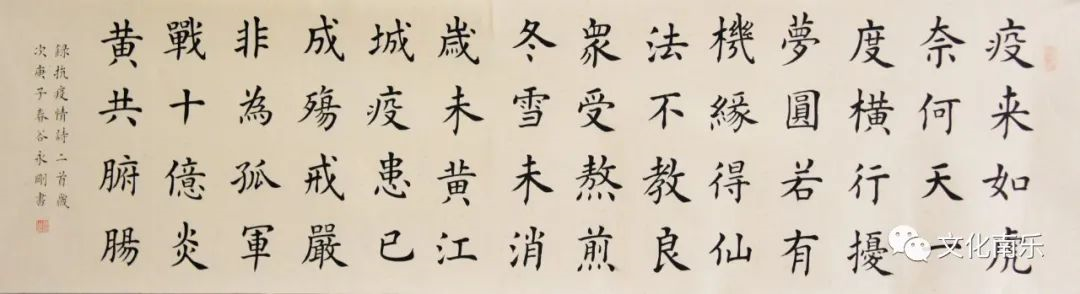 疫来如虎
奈何天一
度横行擾
夢圓若有
機緣得仙
法不教良
衆受熬煎
冬雪未消
歲未黄江
城疫患已
成殤戒嚴
非為孤軍
戰十億炎
黄共腑腸
録抗疫情詩二首歲
次庚子春谷永剛書
文化南乐